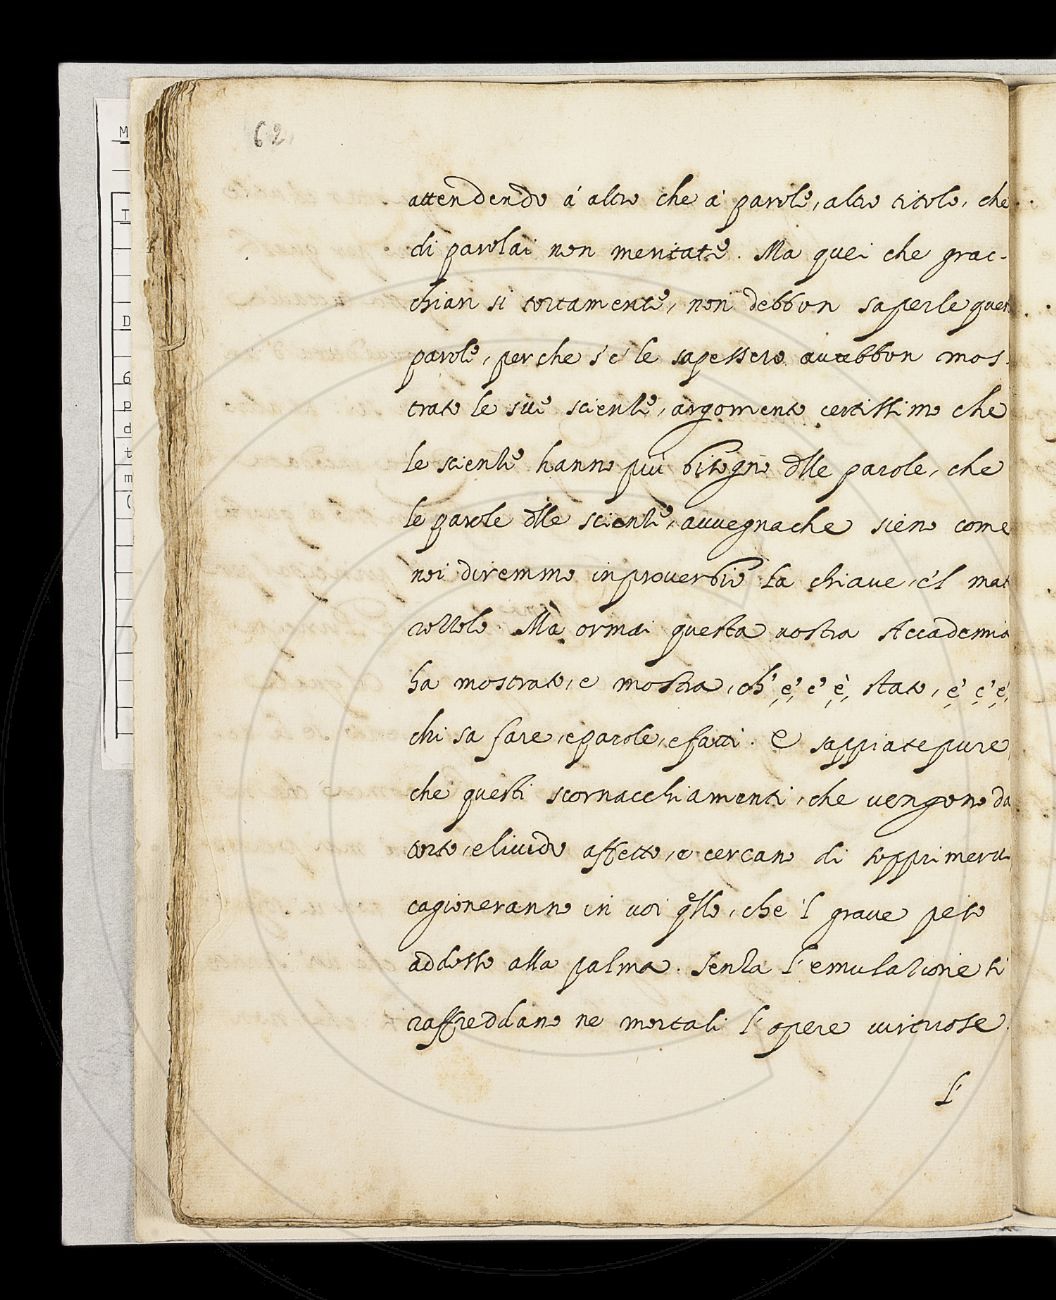 62
attendendo á altro che á parole, altro titolo, che
di parolai non meritate. Ma quei che grac-
chian si tortamente, non debbon saperle queste
parole, perche s'e' le sapessero aurebbon mos-
trato le sue scienze, argomento certissimo che
le scienze hanno piú bisogno dlle parole, che
le parole dlle scienze, auuegnache sieno come
noi diremmo inprouerbio la chiaue, e'l mat
erozzolo. Mà ormai questa nostra Accademia
ha mostrato, e mostra, ch' e' e' è stato, e' c' è
chi sa fare, e parole, e fatti. E sappiate pure,
che questi scornacchiamenti, che vengono da
torto, e liuido affetto, e cercan di sopprimerui
cagioneranno in uoi qllo, che 'l graue peso
addosso alla palma. Senza l'emulazione si
raffreddano ne mortali l'opere uirtuose.
l'